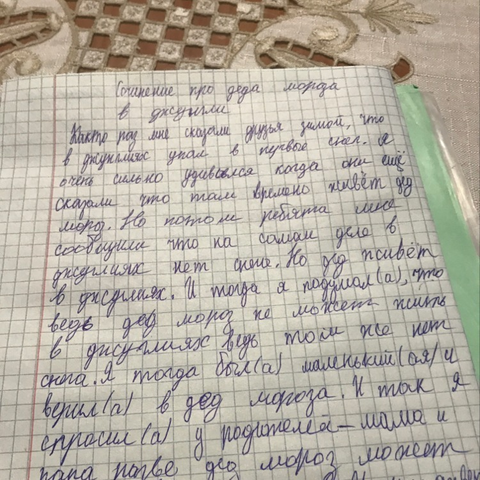 Сочинение про деда мороза
в джунгли
Както раз мне сказали друзья зимой, что
в джунглиях упал в первые снег. Я
очень сильно удивился когда они ещё
сказали что там времено живёт дед
мороз. Но потом ребята мне
сообщили что на самом деле в
джуглиях нет снега. Но дед живёт
в джуглиях. И тогда я подумал(а), что
ведь дед мороз не может жить
в джуглиях ведь там же нет
снега. Я тогда был(а) маленький(ая) и
верил(а) в дед мороза. И так я
спросил(а) у родителей - мама и
папа разве дед мороз может